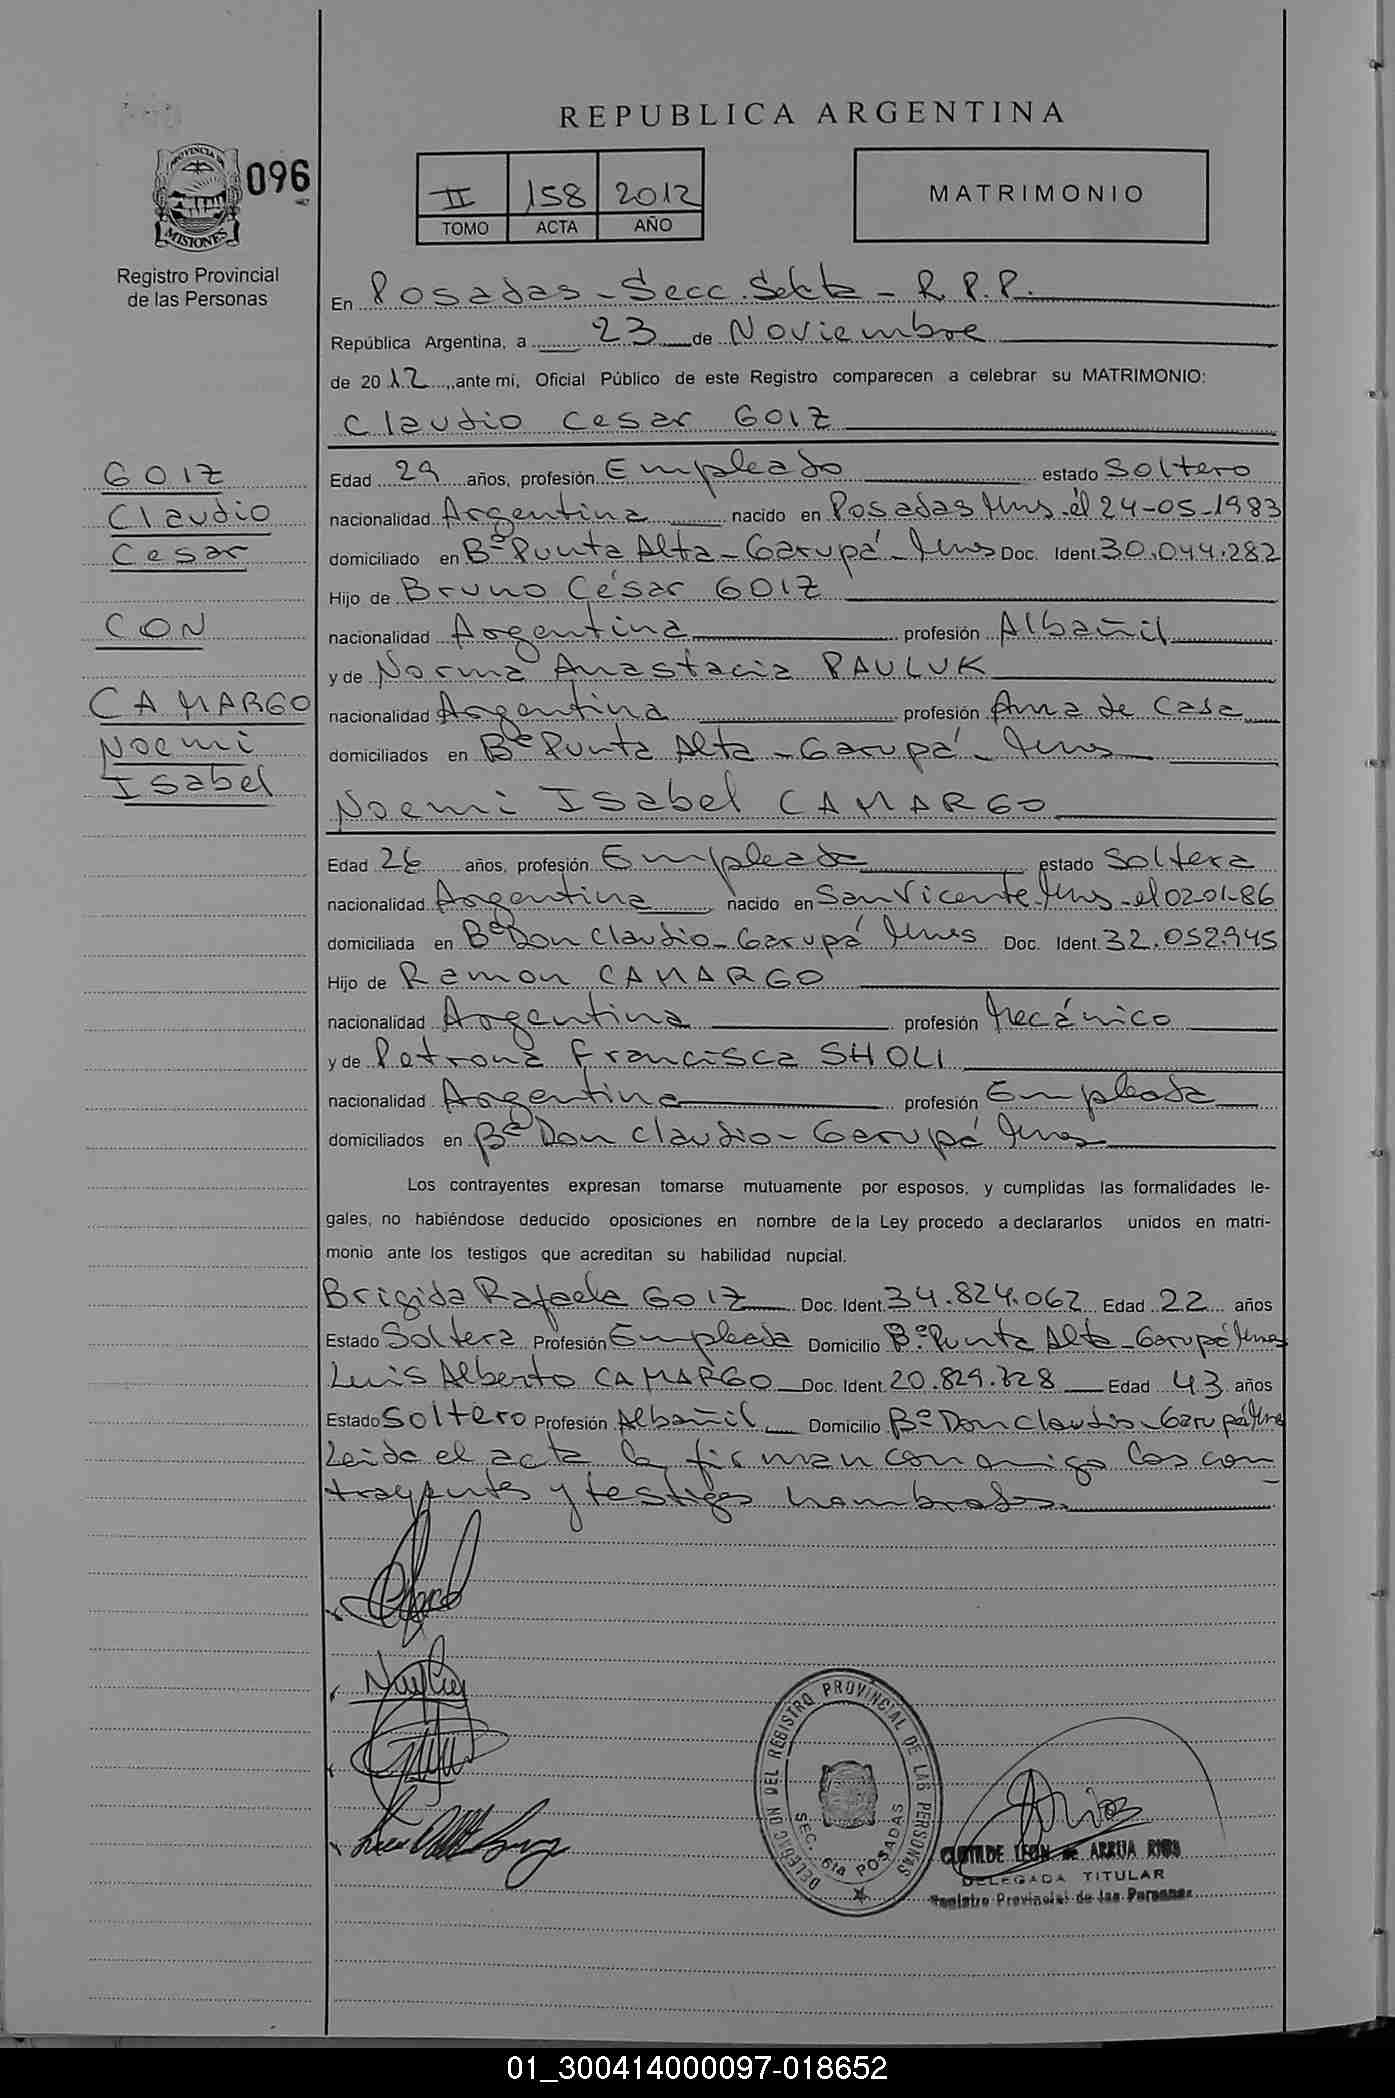 REPUBLICA ARGENTINA
PROVINCIA DE
MISIONES
096
Registro Provincial
de las Personas
II 158 2012
TOMO ACTA AÑO
MATRIMONIO
En Posadas - Secc. Sexta - R.P.P.
República Argentina, a 23 de Noviembre
de 2012, ante mi, Oficial Público de este Registro comparecen a celebrar su MATRIMONIO:
Claudio Cesar GOIZ
GOIZ
Claudio
Cesar
CON
CAMARGO
Noemi
Isabel
Edad 29 años, profesión Empleado estado Soltero
nacionalidad Argentina nacido en Posadas Mns. él 24-05-1983
domiciliado en Bº Punta Alta - Garupá - Mnes Doc. Ident. 30.044.282
Hijo de Bruno César GOIZ
nacionalidad Argentina profesión Albañil
y de Norma Anastacia PAULUK
nacionalidad Argentina profesión Ama de Casa
domiciliados en Bº Punta Alta - Garupá - Mnes
Noemi Isabel CAMARGO
Edad 26 años, profesión Empleada estado Soltera
nacionalidad Argentina nacido en San Vicente Mns - el 02-01-86
domiciliada en Bº Don Claudio - Garupá Mnes Doc. Ident. 32.052.945
Hijo de Ramon CAMARGO
nacionalidad Argentina profesión Mecánico
y de Petrona Francisca SHOLI
nacionalidad Argentina profesión Empleada
domiciliados en Bº Don Claudio - Garupá Mnes
Los contrayentes expresan tomarse mutuamente por esposos, y cumplidas las formalidades le-
gales, no habiéndose deducido oposiciones en nombre de la Ley procedo a declararlos unidos en matri-
monio ante los testigos que acreditan su habilidad nupcial.
Brigida Rafaela GOIZ Doc. Ident. 34.824.062 Edad 22 años
Estado Soltera Profesión Empleada Domicilio Bº Punta Alta - Garupá Mnes
Luis Alberto CAMARGO Doc. Ident. 20.829.728 Edad 43 años
Estado Soltero Profesión Albañil Domicilio Bº Don Claudio - Garupá Mnes
Leida el acta la firman conmigo los con-
trayentes y testigos nombrados.
DELEGACION DEL REGISTRO PROVINCIAL DE LAS PERSONAS
SEC. 6ta POSADAS
CLOTILDE LEON de ARRUA RIOS
DELEGADA TITULAR
Registro Provincial de las Personas
01_300414000097-018652